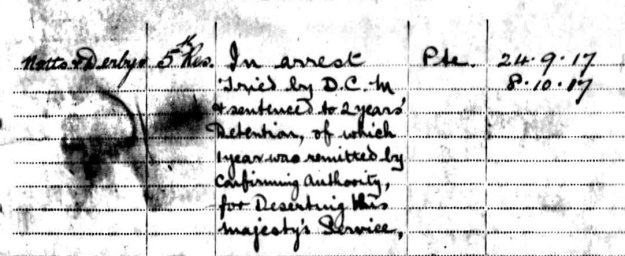 Notts & Derbys 5th Res. In arrest Pte. 24.9.17
Tried by D.C.M 8.10.17
& sentenced to 2 years'
Detention, of which
1 year was remitted by
Confirming Authority,
for Deserting His
Majesty's Service,